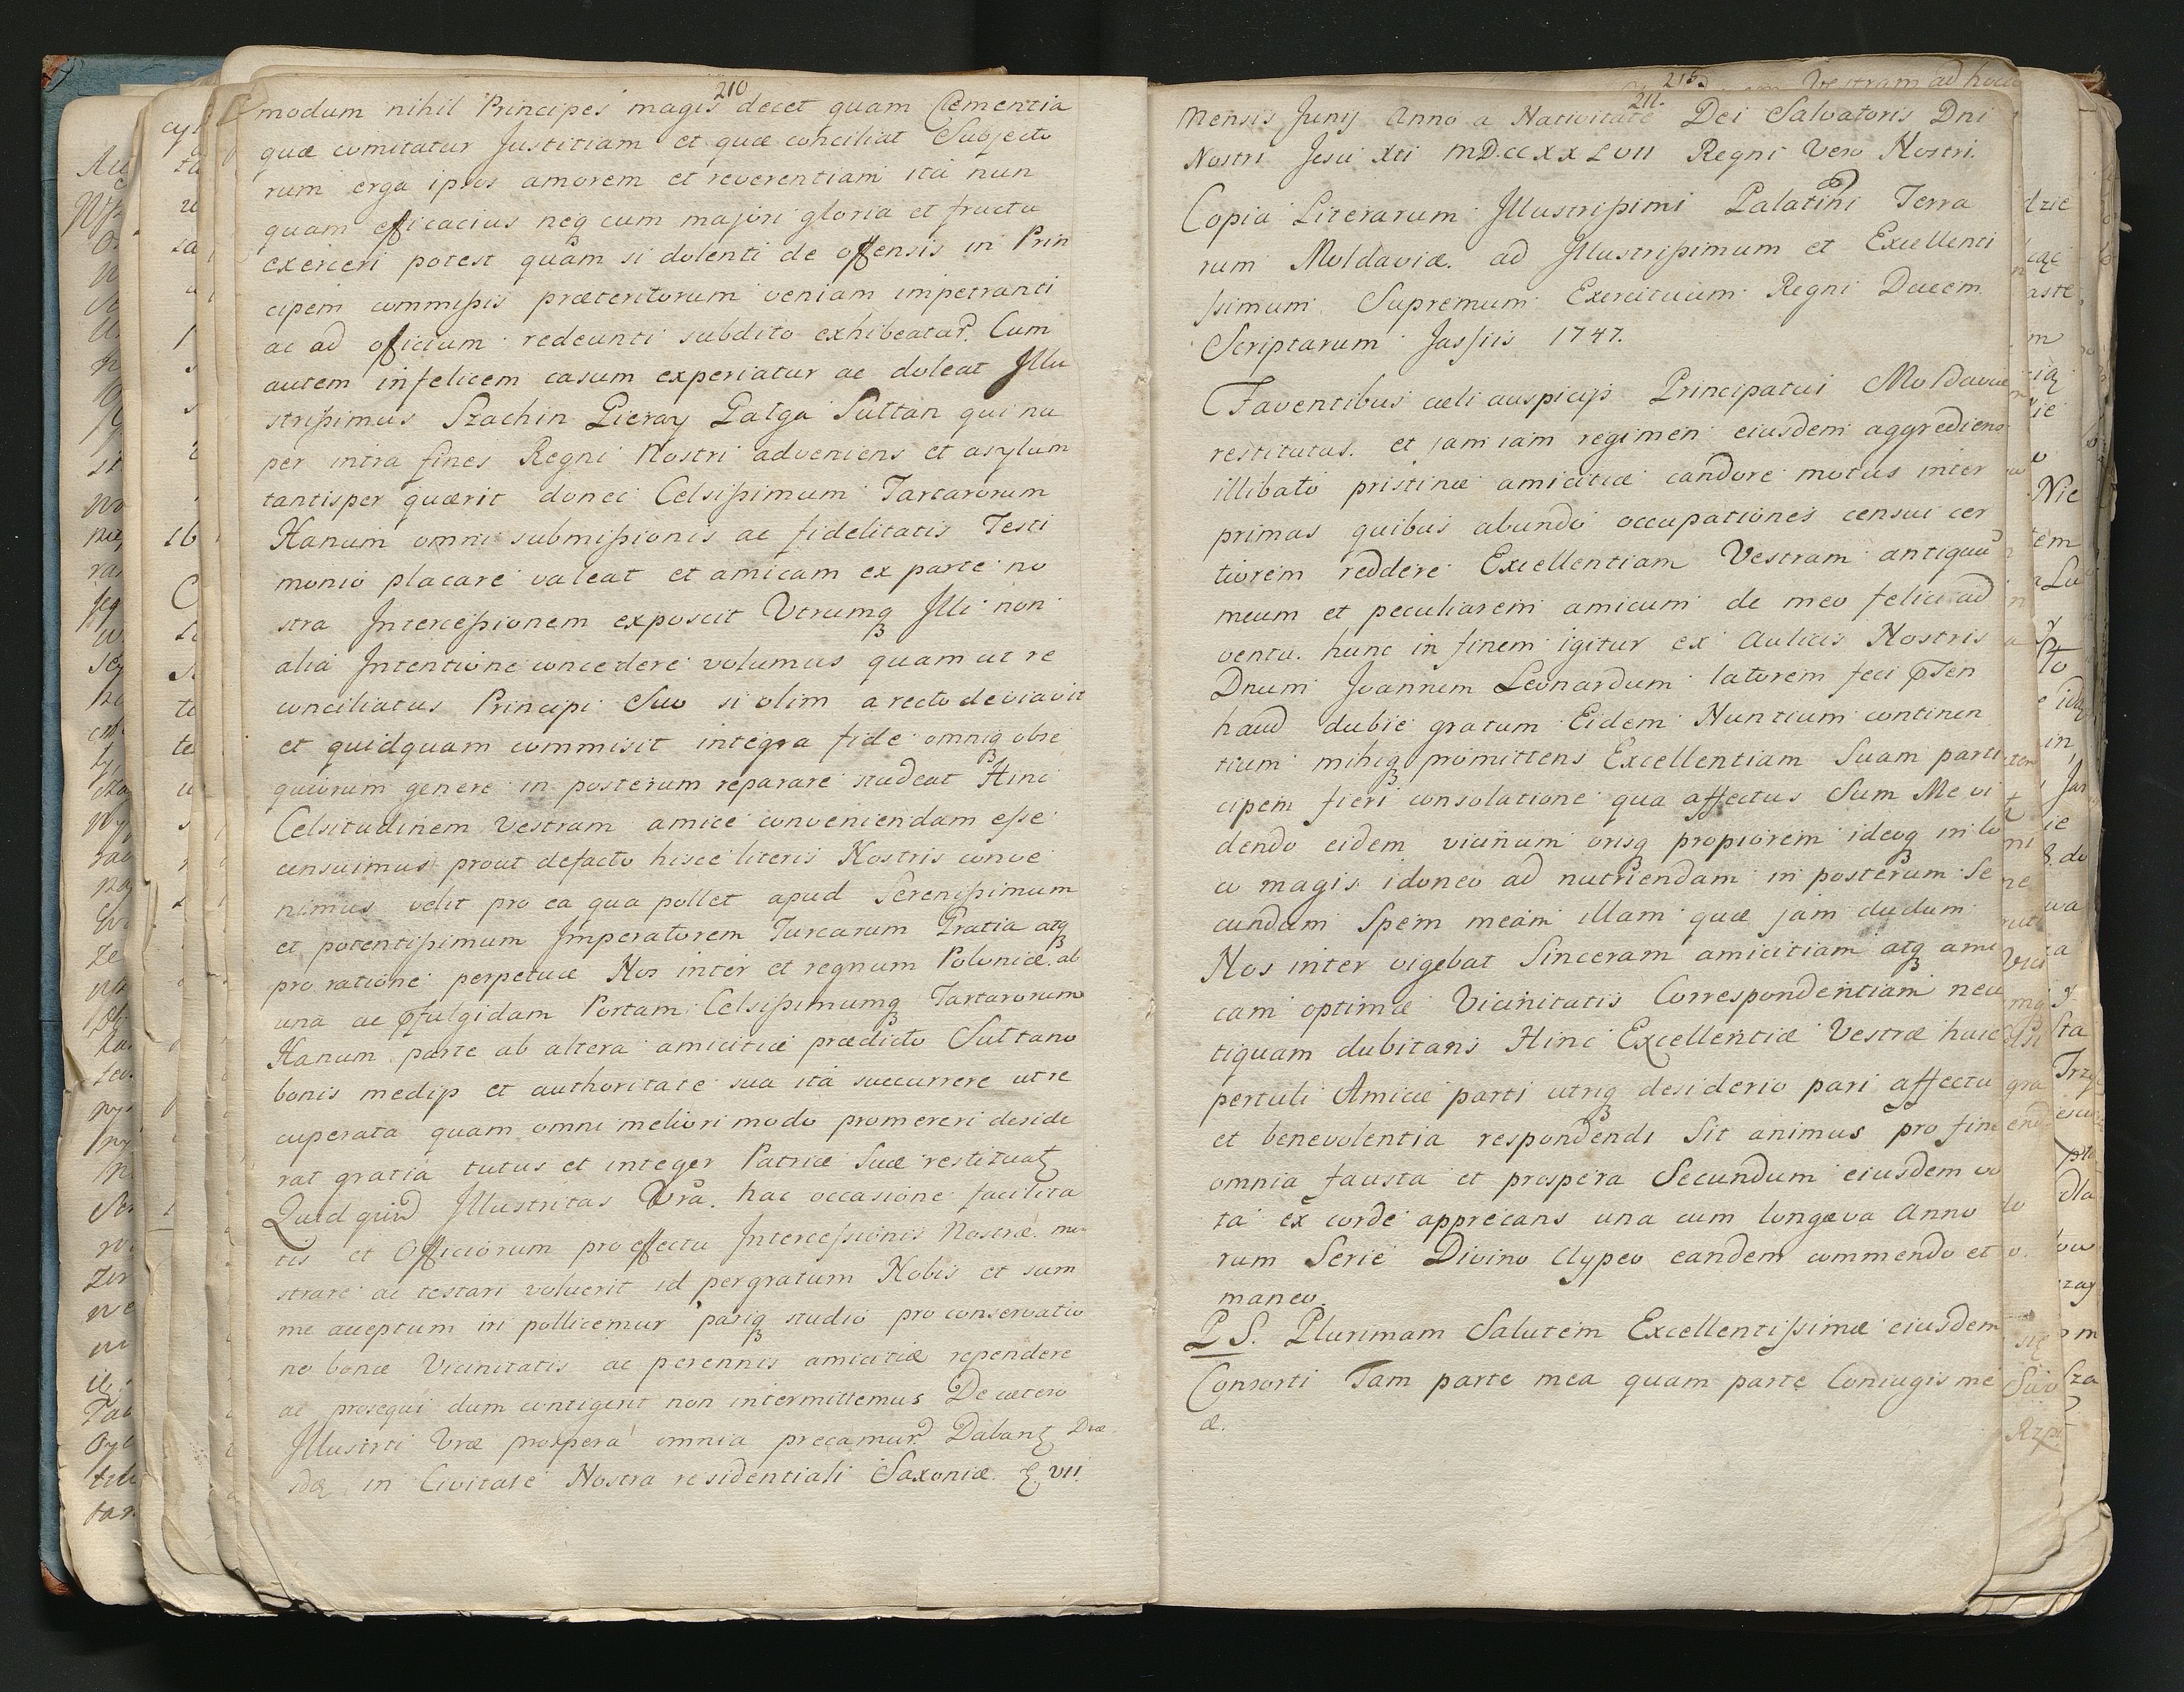 210
modum nihil Principes magis decet quam Clementia
quæ comitatur Justitiam et quæ conciliat Subjecto
rum erga ipsos amorem et reverentiam ità nun
quam efficacius neq cum majori gloria et fructu
exerceri potest quàm si dolenti de offensis in Prin
cipem commißis præteritorum veniam impetranti
ac ad officium redeunti subdito exhibeatur. Cum
autem infelicem casum experiatur ac doleat Illu
strißimus Szachin Gieray Galga Sultan qui nu
per intra fines Regni Nostri adveniens et asylum
tantisper quærit donec Celsißimum Tartarorum
Hanum omni submißionis ac fidelitatis Testi
monio placare valeat et amicam ex parte no
stra Interceßionem exposcit Utrumq Illi non
alia Intentione concedere volumus quam ut re
conciliatus Principi Suo si olim a recto deviavit
et quidquam commisit integra fide omniq obse
quiorum genere in posterum reparare studeat Hinc
Celsitudinem Vestram amice conveniendam eße
censuimus prout defacto hisce literis Nostris conve
nimus velit pro ea qua pollet apud Serenißimum
et potentißimum Imperatorem Turcarum Gratia atq
pro ratione perpetuæ Nos inter et regnum Poloniæ ab
una ac fulgidam Portam Celsißimumq Tartarorum
Hanum parte ab altera amicitiæ prædicto Sultano
bonis medijs et authoritate sua ità succurrere ut re
cuperata quam omni meliori modo promereri deside
rat gratia tutus et integer Patriæ Suæ restituat
Quidquid Illustritas Vra. hac occasione facilita
tis et Officiorum pro effectu Intercessionis Nostræ mon
strare ac testari voluerit id pergratum Nobis et sum
me acceptum iri pollicemur pariq studio pro conservatio
ne bonæ Vicinitatis ac perennis amicitiæ rependere
ac prosequi dum contigerit non intermittemus De cætero
Illustrti Vræ prospera omnia precamur Dabant Dre
sdæ in Civitate Nostra residentiali Saxoniæ VII
215
211.
Mensis Junij Anno a Nativitate Dei Salvatoris Dni
Nostri Jesu Xti MDCCXXLVII Regni Vero Nostri.
Copia Literarum Illustrißimi Palatini Terra
rum Moldaviæ. ad Illustrißimum et Excellenti
ßimum Supremum Exercituum Regni Ducem
Scriptarum Jassiis 1747.
Faventibus cæli auspicijs Principatui Moldaviæ
restitutus. et jam iam regimen eiusdem aggrediens
illibato pristinæ amicitiæ candore motus inter
primas quibus abundo occupationes censui cer
tiorem reddere Excellentiam Vestram antiquũ
meum et peculiarem amicum de meo felici ad
ventu. hunc in finem igitur ex Aulicis Nostris
Dnum Joannem Leonardum latorem feci Psen
haud dubie gratum Eidem Nuntium continen
tium mihiq promittens Excellentiam Suam parti
cipem fieri consolatione qua affectus Sum Me vi
dendo eidem vicinum orisq propiorem ideoq in lo
co magis idoneo ad nutriendam in posterum Se
cundum Spem meam illam quæ jam dudum
Nos inter vigebat Sinceram amicitiam atq ami
cam optimæ Vicinitatis Correspondentiam neu
tiquam dubitans Hinc Excellentiæ Vestræ huic
pertuli Amicæ parti utriq desiderio pari affectu
et benevolentia respondendi Sit animus pro fine
omnia fausta et prospera Secundum eiusdem vo
ta ex corde apprecans una cum longæva Anno
rum Serie Divino Clypeo eandem commendo et
maneo.
P S. Plurimam Salutem Excellentißimæ eiusdem
Consorti Tam parte mea quam parte Coniugis me
æ.